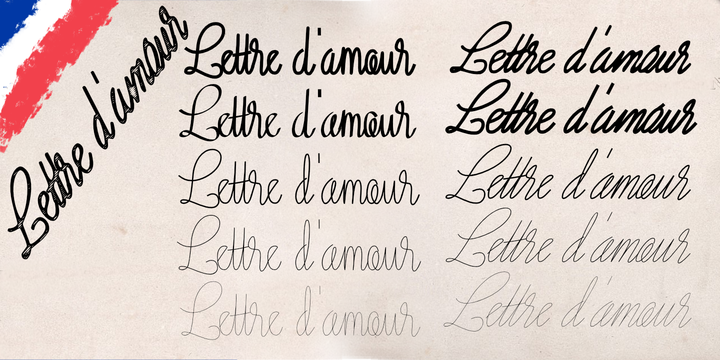 Lettre d'amour
Lettre d'amour
Lettre d'amour
Lettre d'amour
Lettre d'amour
Lettre d'amour
Lettre d'amour
Lettre d'amour
Lettre d'amour
Lettre d'amour
Lettre d'amour